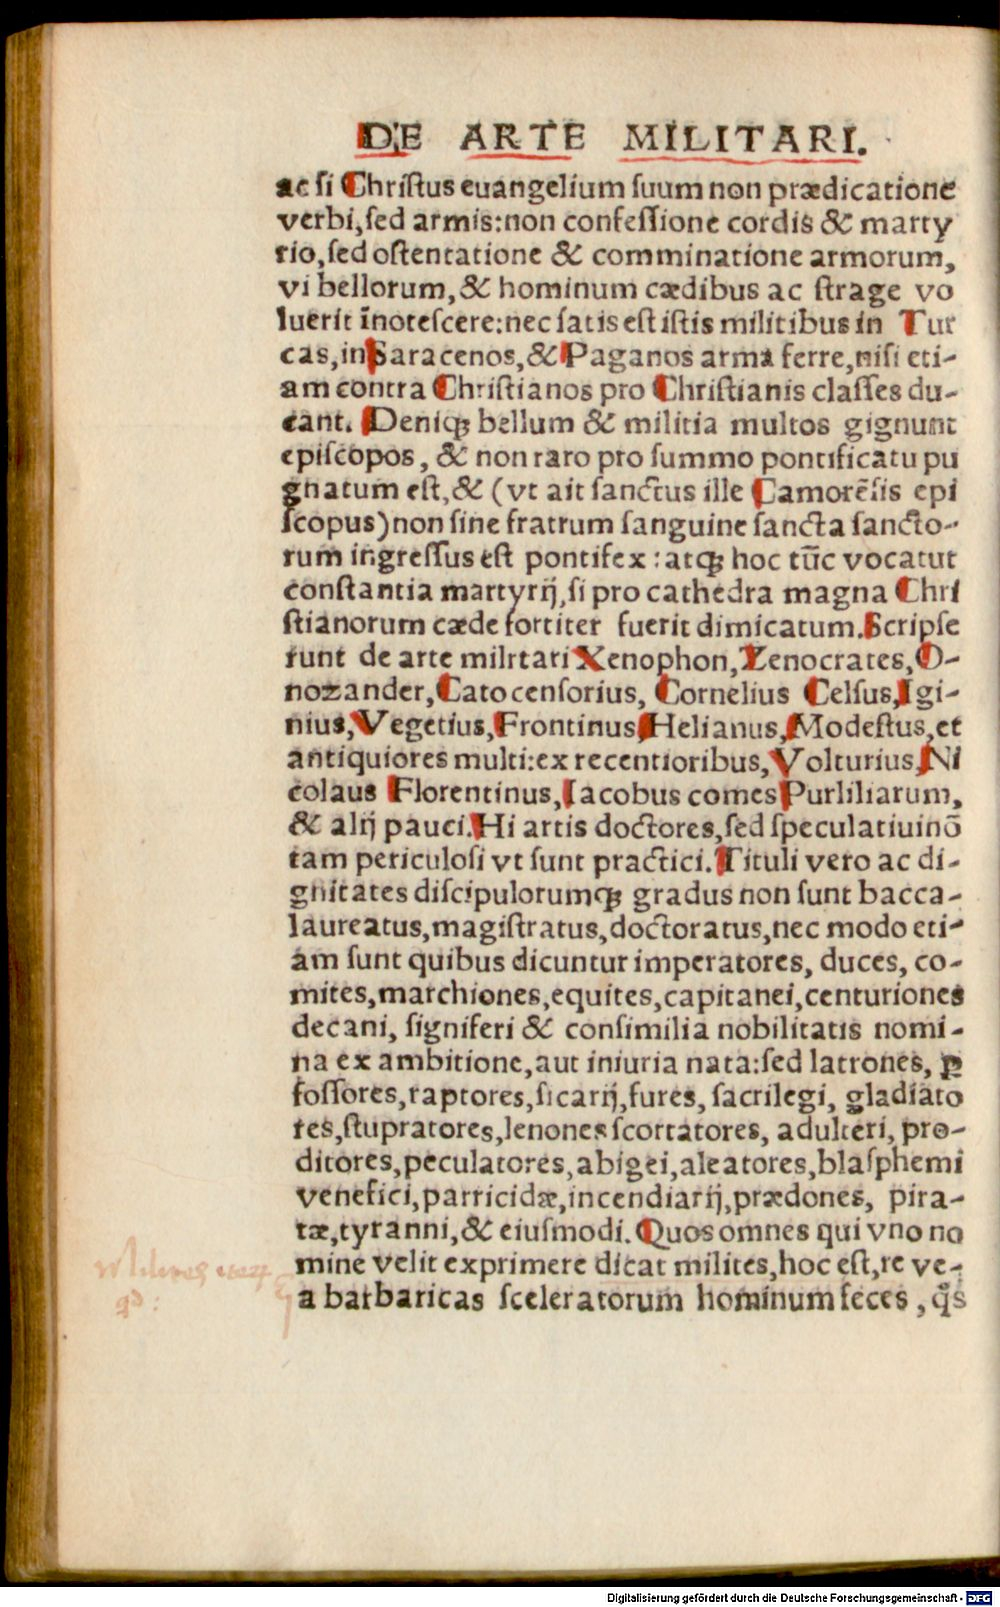 DE ARTE MILITARI.
ac ſi Chriſtus euangelium ſuum non prædicatione
verbi, ſed armis: non confeſſione cordis & marty
rio, ſed oſtentatione & comminatione armorum,
vi bellorum, & hominum cædibus ac ſtrage vo
luerit ĩnoteſcere: nec ſatis eſt iſtis militibus in Tur
cas, in Saracenos, & Paganos arma ferre, niſi eti-
am contra Chriſtianos pro Chriſtianis claſſes du-
cant. Deniqꝫ bellum & militia multos gignunt
epiſcopos, & non raro pro ſummo pontificatu pu
gnatum eſt, & (vt ait ſanctus ille Camorẽſis epi
ſcopus) non ſine fratrum ſanguine ſancta ſancto-
rum ingreſſus eſt pontifex: atqꝫ hoc tũc vocatur
conſtantia martyrij, ſi pro cathedra magna Chri
ſtianorum cæde fortiter fuerit dimicatum. Scripſe
runt de arte milrtari Xenophon, Xenocrates, O-
nozander, Cato cenſorius, Cornelius Celſus, Igi-
nius, Vegetius, Frontinus, Helianus, Modeſtus, et
antiquiores multi: ex recentioribus, Volturius, Ni
colaus Florentinus, Iacobus comes Purliliarum,
& alij pauci. Hi artis doctores, ſed ſpeculatiui nõ
tam periculoſi vt ſunt practici. Tituli vero ac di-
gnitates diſcipulorumqꝫ gradus non ſunt bacca-
laureatus, magiſtratus, doctoratus, nec modo eti-
am ſunt quibus dicuntur imperatores, duces, co-
mites, marchiones, equites, capitanei, centuriones
decani, ſigniferi & conſimilia nobilitatis nomi-
na ex ambitione, aut iniuria nata: ſed latrones, ꝑ
foſſores, raptores, ſicarij, fures, ſacrilegi, gladiato
res, ſtupratores, lenones ſcortatores, adulteri, pro-
ditores, peculatores, abigei, aleatores, blaſphemi
venefici, parricidæ, incendiarij, prædones, pira-
tæ, tyranni, & eiuſmodi. Quos omnes qui vno no
mine velit exprimere dicat milites, hoc eſt, re ve-
a barbaricas ſceleratorum hominum feces, q̊s
Digitalisierung gefördert durch die Deutsche Forschungsgemeinschaft - DFG